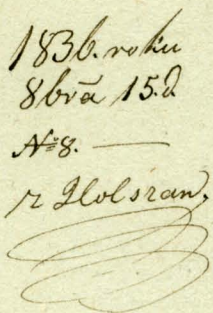 1836. roku
8brā 15. d.
№ 8. —
z Holszan,